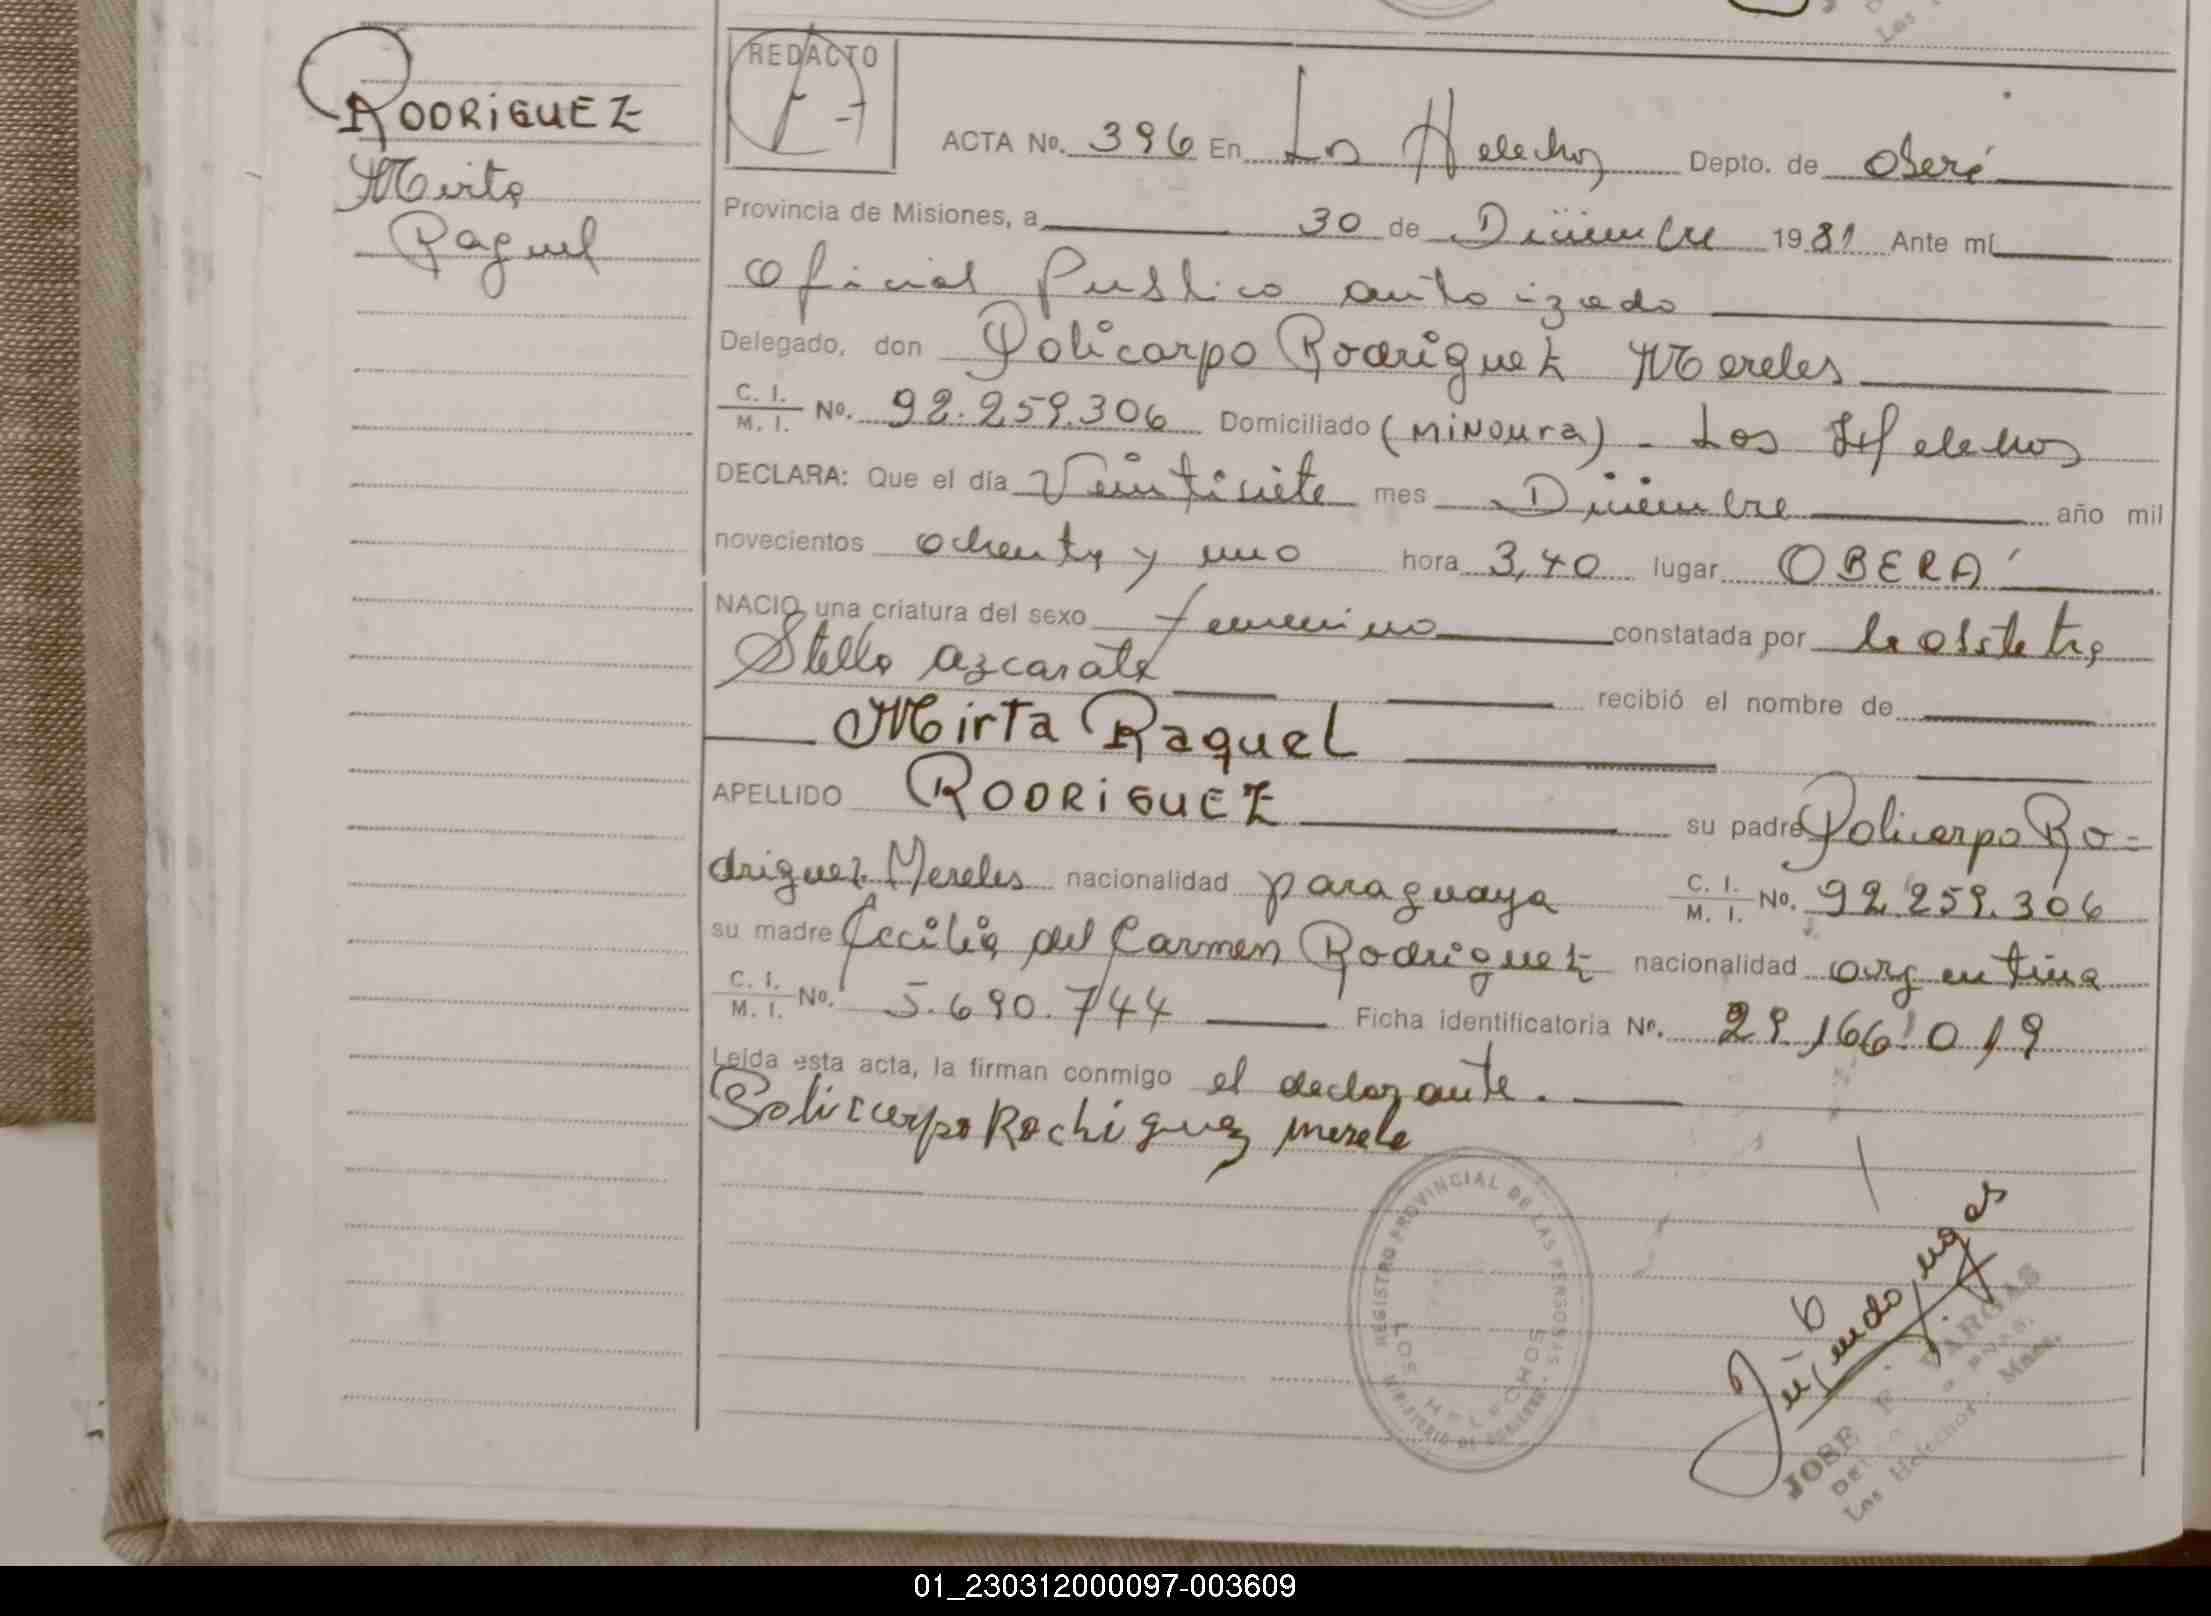 RODRIGUEZ
Mirta
Raquel
REDACTO
ACTA No. 396 En Los Helechos Depto. de Oberá
Provincia de Misiones, a 30 de Diciembre 1981 Ante mí
Oficial Publico autorizado
Delegado, don Policarpo Rodriguez Mereles
C. I. / M. I. No. 92.259.306 Domiciliado (MINOURA) - Los Helechos
DECLARA: Que el día Veintisiete mes Diciembre año mil
novecientos ochenta y uno hora 3,40 lugar OBERÁ
NACIO una criatura del sexo femenino constatada por la obstetra
Stella Azcarate recibió el nombre de
Mirta Raquel
APELLIDO RODRIGUEZ su padre Policarpo Ro=
driguez Mereles nacionalidad paraguaya C. I. / M. I. No. 92.259.306
su madre Cecilia del Carmen Rodriguez nacionalidad argentina
C. I. / M. I. No. 5.690.744 Ficha identificatoria No. 29.166.019
Leida esta acta, la firman conmigo el declarante.
Policarpo Rodriguez merele
REGISTRO PROVINCIAL DE LAS PERSONAS
LOS HELECHOS
MINISTERIO DE GOBIERNO
JOSE F. VARGAS
Los Helechos - Mnes.
01_230312000097-003609